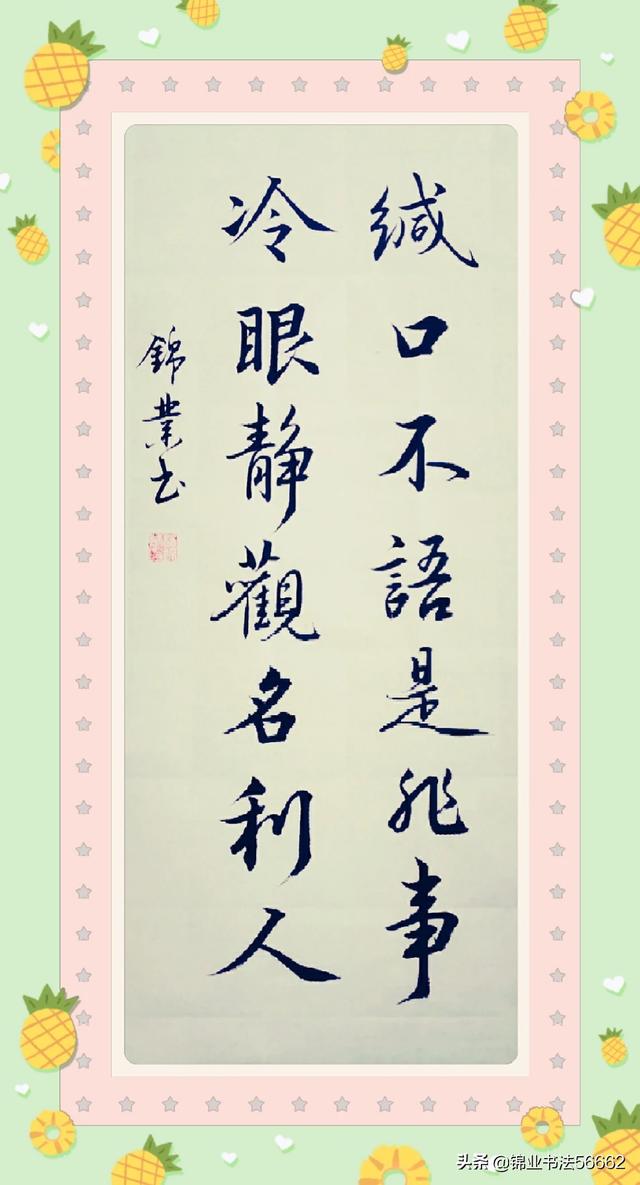 缄口不語是非事
冷眼静觀名利人
錦業书
头条 @锦业书法56662